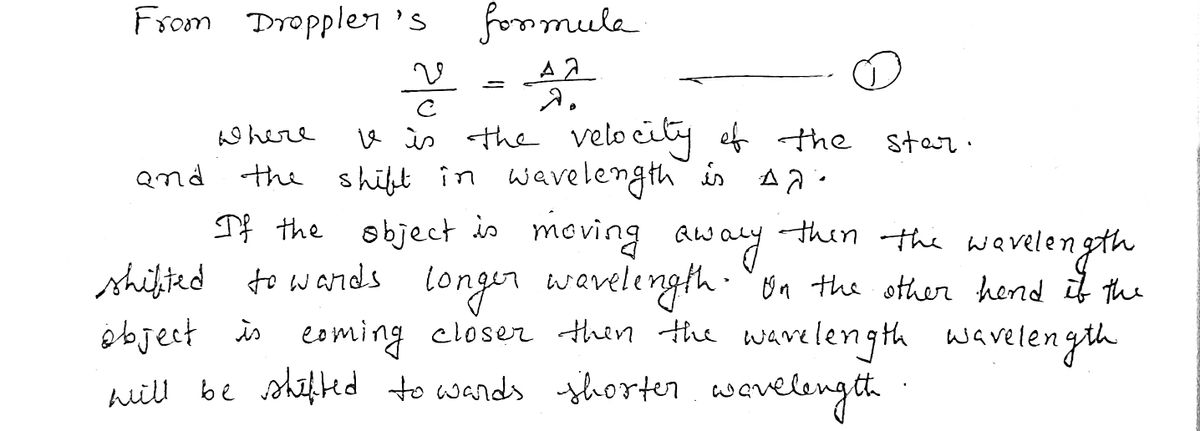 From Droppler's formula
v/c = Δλ/λ₀ ——— ①
where v is the velocity of the star.
and the shift in wavelength is Δλ.
If the object is moving away then the wavelength
shifted towards longer wavelength. On the other hend if the
object is coming closer then the wavelength wavelength
will be shifted towards shorter wavelength.